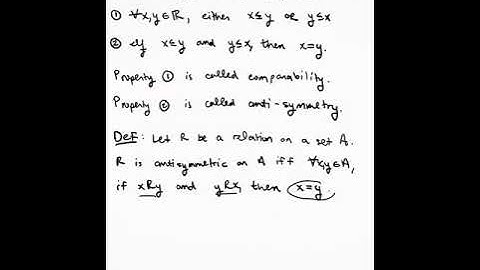 ① ∀x,y∈ℝ, either x≤y or y≤x
② If x≤y and y≤x, then x=y.
Property ① is called comparability.
Property ② is called anti-symmetry.
Def: Let R be a relation on a set A.
R is antisymmetric on A iff ∀x,y∈A,
if xRy and yRx, then x=y.